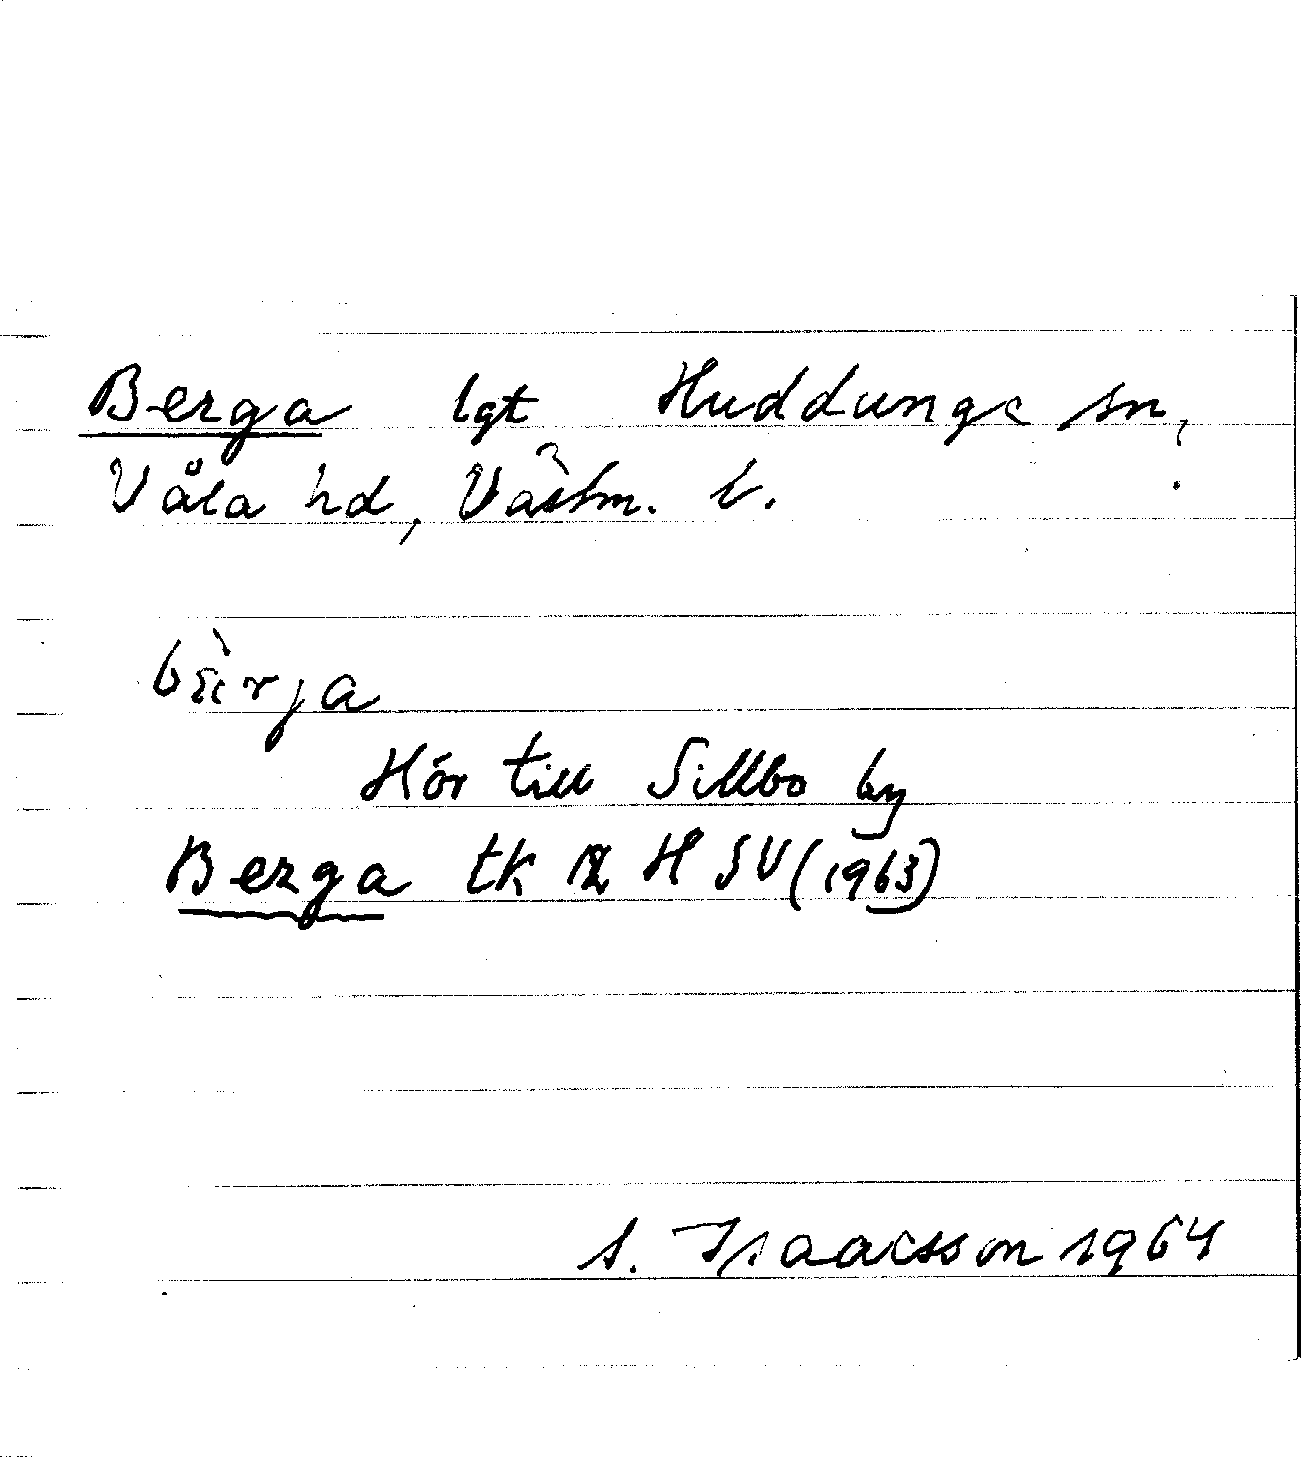 Berga lgt Huddunge sn,
Våla hd, Västm. l.
bä̀rja
Hör till Sillbo by
Berga tk 12 H SV (1963)
S. Isaacsson 1964